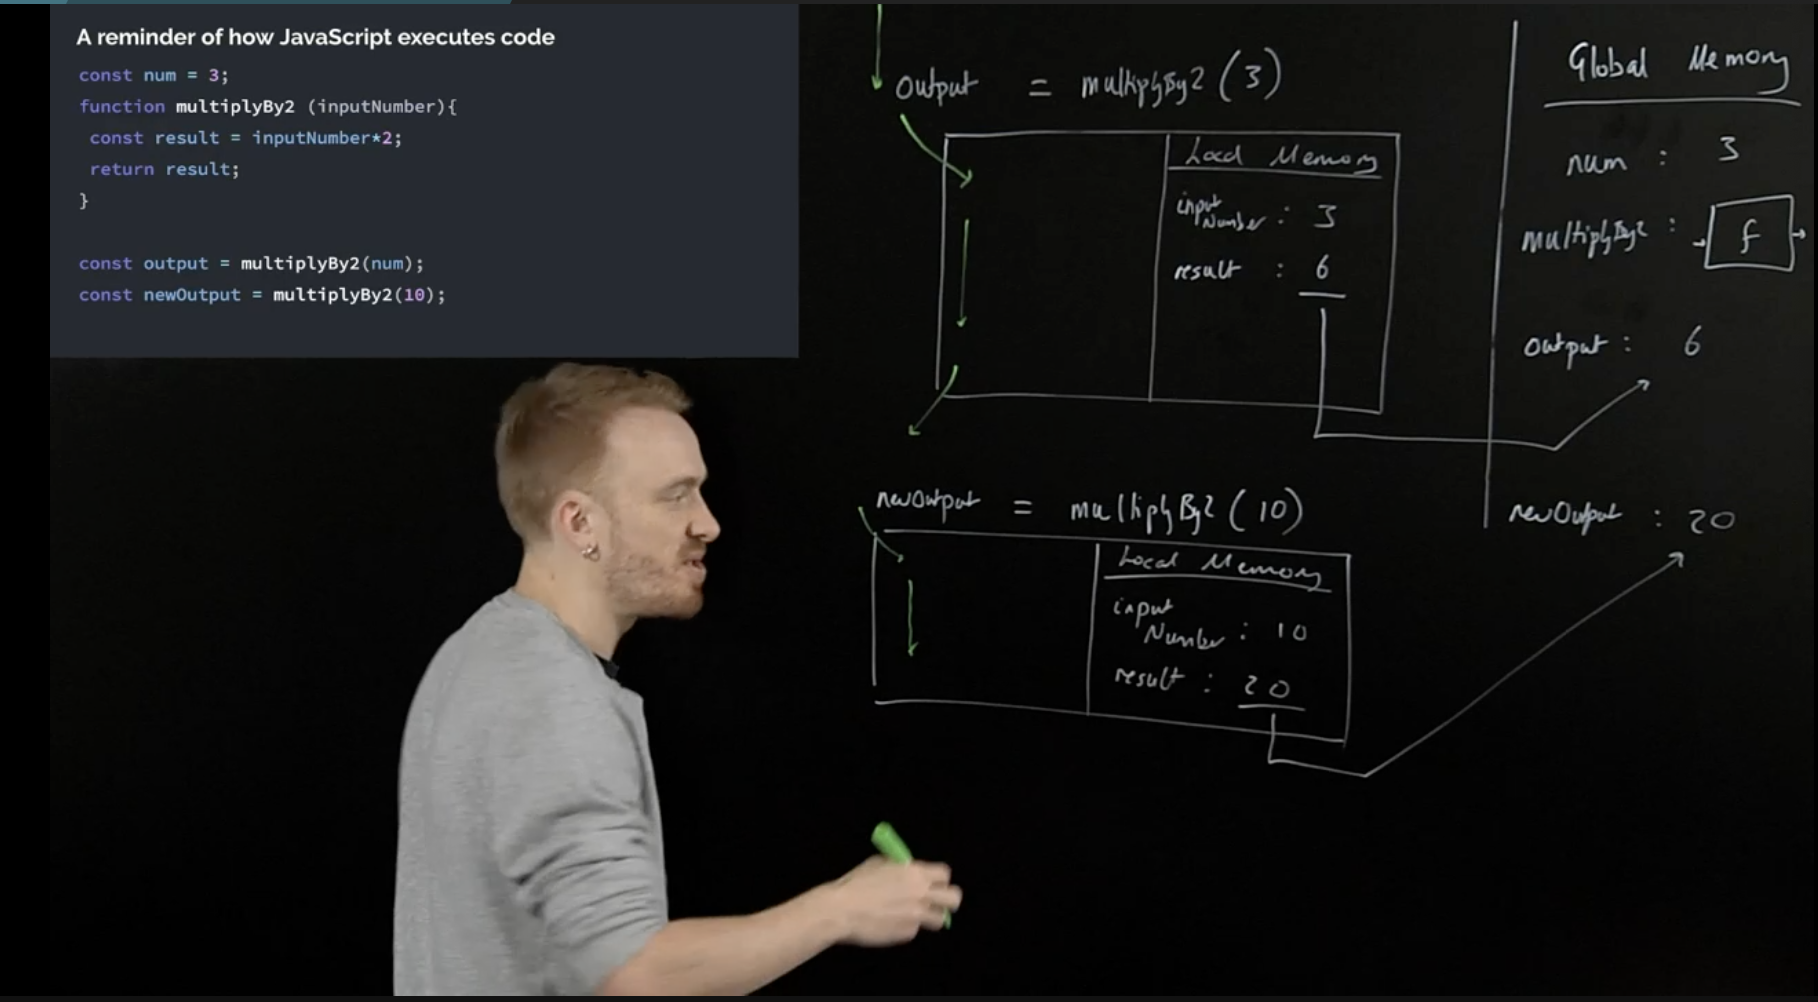 A reminder of how JavaScript executes code
const num = 3;
function multiplyBy2 (inputNumber){
const result = inputNumber*2;
return result;
}
const output = multiplyBy2(num);
const newOutput = multiplyBy2(10);
output = multiplyBy2 (3)
Local Memory
input
Number : 3
result : 6
newOutput = multiplyBy2 (10)
Local Memory
input
Number : 10
result : 20
Global Memory
num : 3
multiplyBy2 : f
output : 6
newOutput : 20